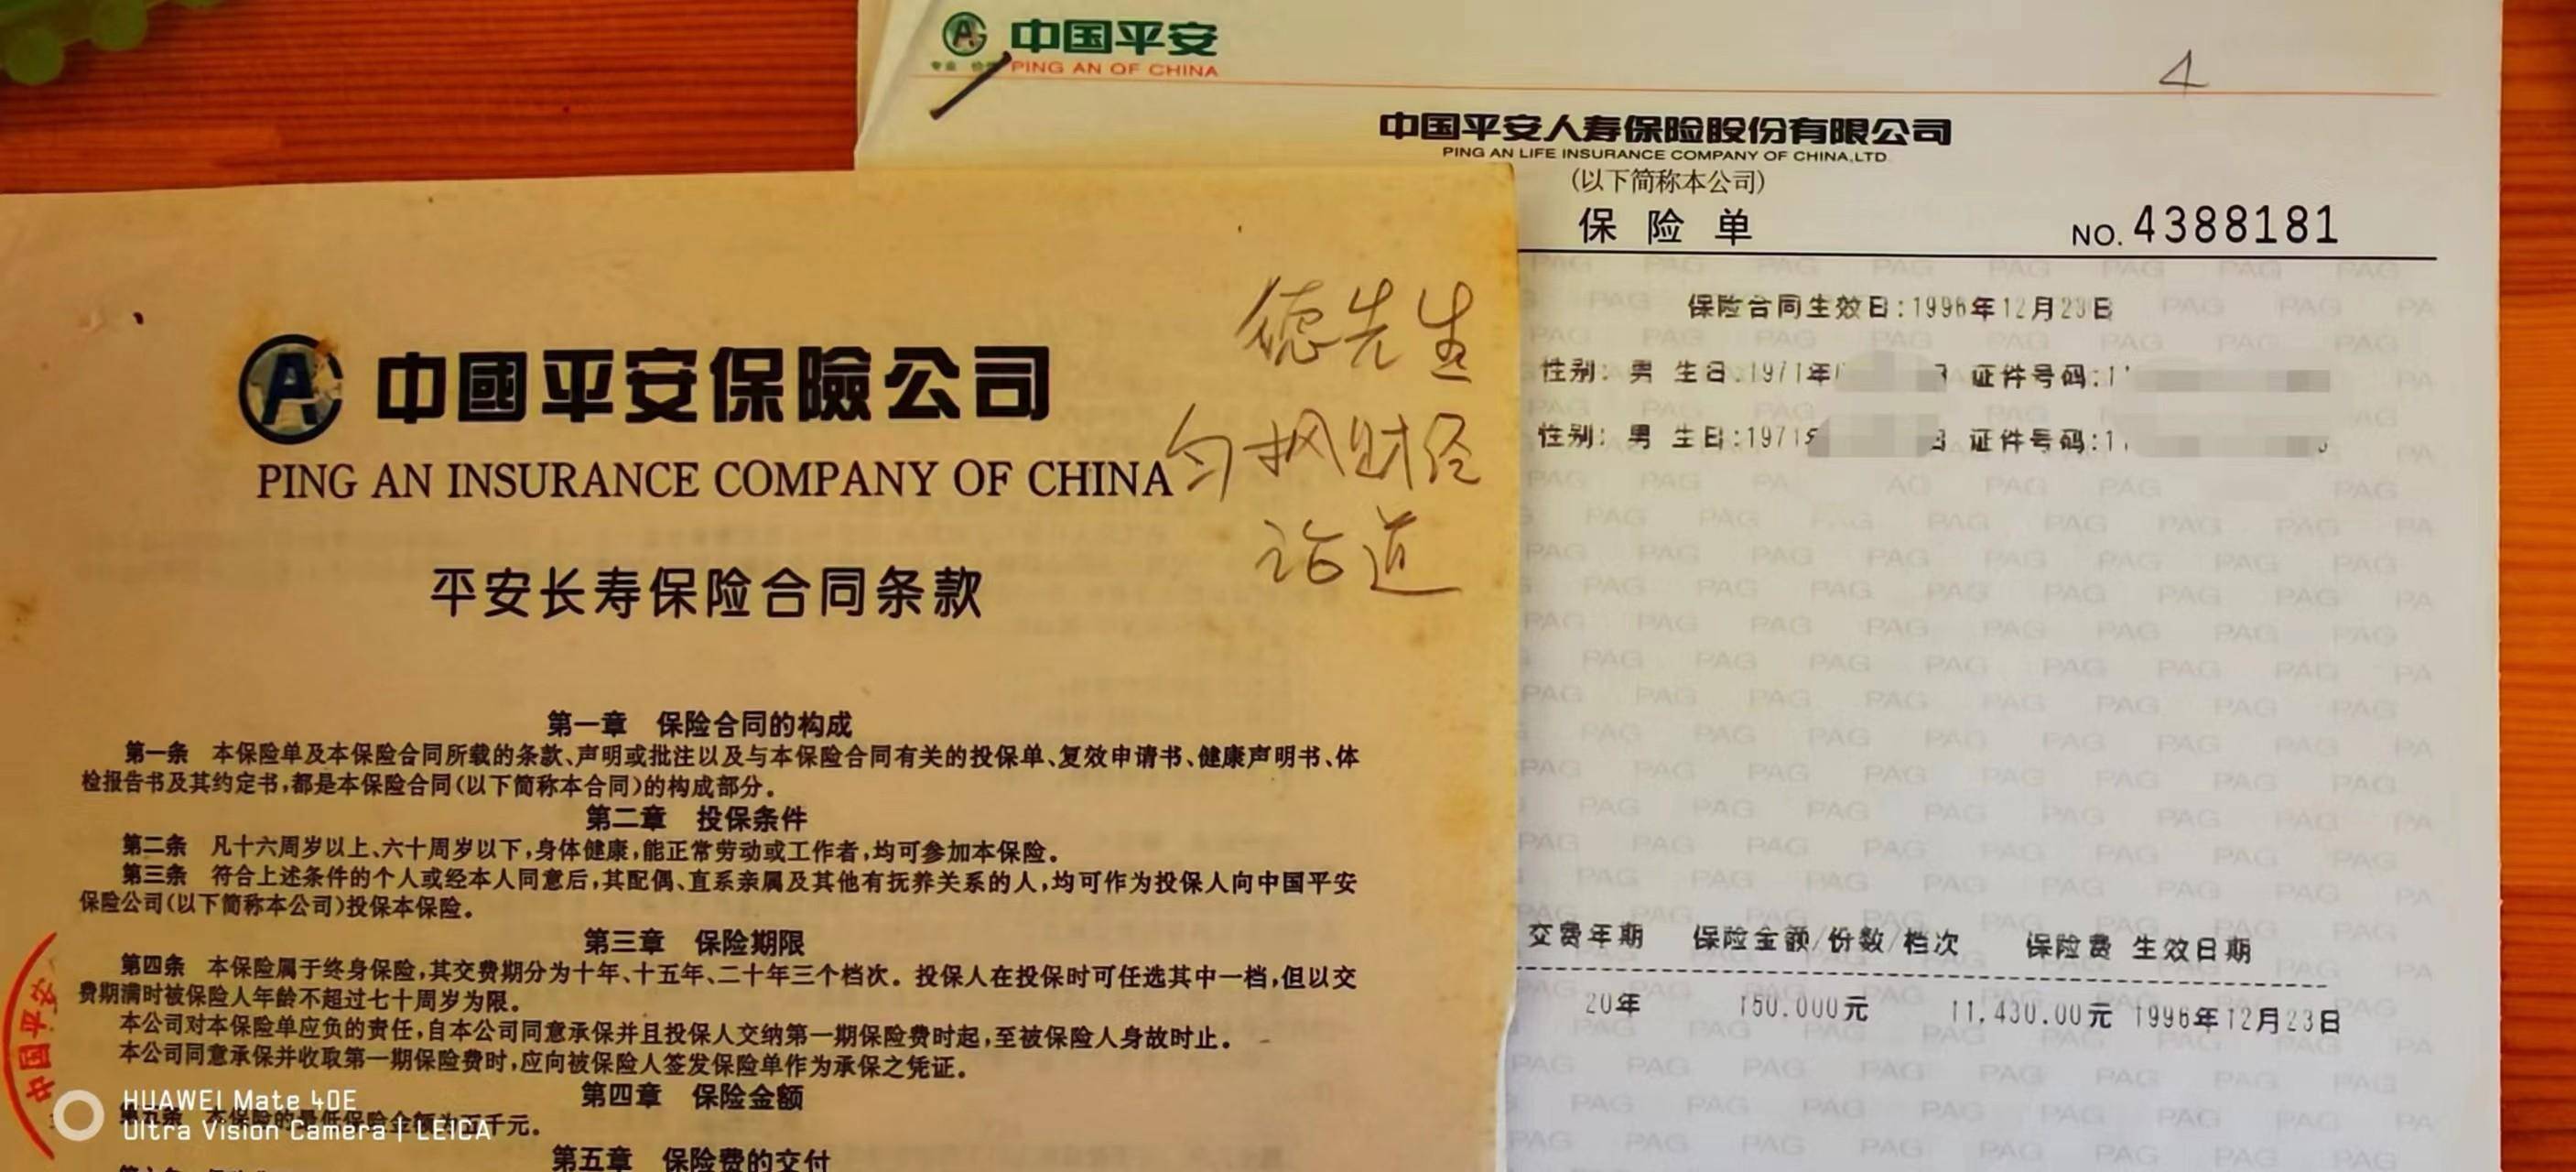 中国平安
专业
PING AN OF CHINA
4
中国平安人寿保险股份有限公司
PING AN LIFE INSURANCE COMPANY OF CHINA,LTD.
(以下简称本公司)
保险单
NO. 4388181
保险合同生效日:1996年12月23日
性别: 男 生日:1971年 证件号码:1
性别: 男 生日:1971 证件号码:1
交费年期 保险金额/份数/档次 保险费 生效日期
20年 150.000元 11,430.00元 1996年12月23日
中國平安保險公司
PING AN INSURANCE COMPANY OF CHINA
平安长寿保险合同条款
德先生
匀枫财经
论道
第一章 保险合同的构成
第一条 本保险单及本保险合同所载的条款、声明或批注以及与本保险合同有关的投保单、复效申请书、健康声明书、体
检报告书及其约定书,都是本保险合同(以下简称本合同)的构成部分。
第二章 投保条件
第二条 凡十六周岁以上、六十周岁以下,身体健康,能正常劳动或工作者,均可参加本保险。
第三条 符合上述条件的个人或经本人同意后,其配偶、直系亲属及其他有抚养关系的人,均可作为投保人向中国平安
保险公司(以下简称本公司)投保本保险。
第三章 保险期限
第四条 本保险属于终身保险,其交费期分为十年、十五年、二十年三个档次。投保人在投保时可任选其中一档,但以交
费期满时被保险人年龄不超过七十周岁为限。
本公司对本保险单应负的责任,自本公司同意承保并且投保人交纳第一期保险费时起,至被保险人身故时止。
本公司同意承保并收取第一期保险费时,应向被保险人签发保险单作为承保之凭证。
第四章 保险金额
第五条 本保险的最低保险金额为五千元。
第五章 保险费的交付
中国平安
HUAWEI Mate 40E
Ultra Vision Camera | LEICA